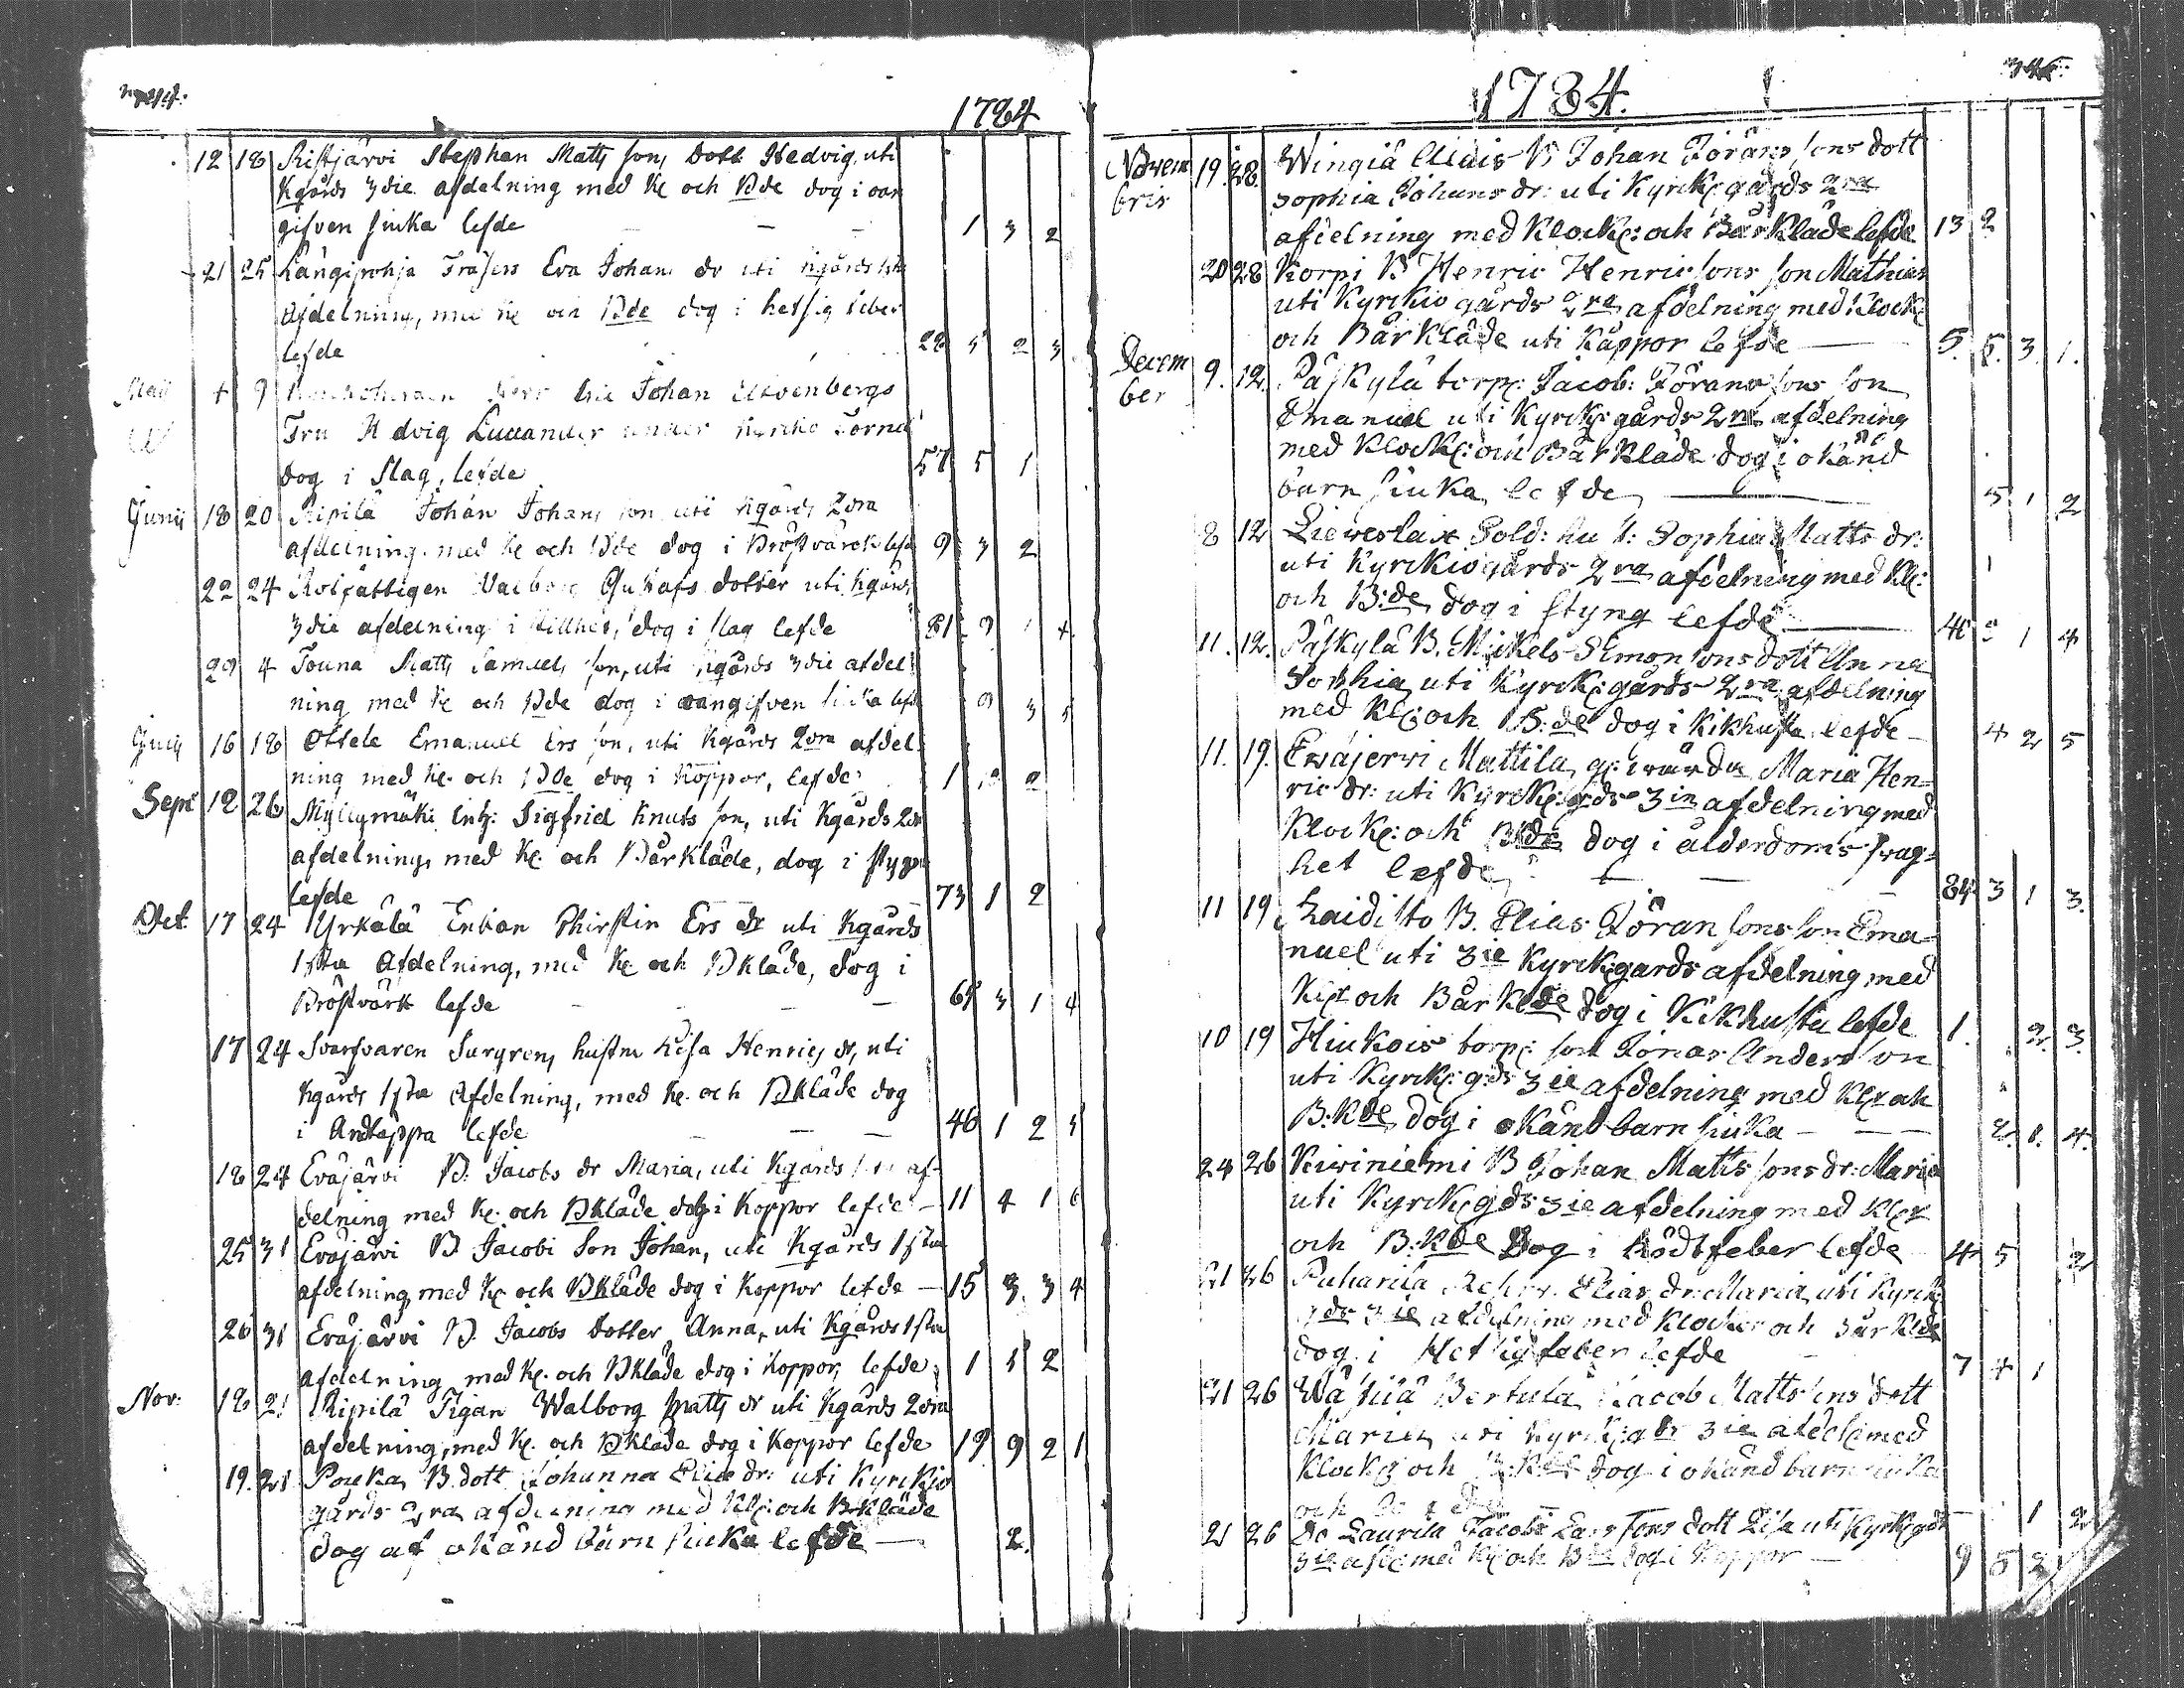 1784
12 18 Ristjärvi Stephan Matts sons Dott Hedvig, uti
Kgårds 3die afdelning med Kl och Bde dog i oan
gifven siuka lefde — — — 1 3 2
21 25 Eva Johans dr uti Kgårds 1sta
afdelning, med Kl och Bde dog i hetsig feber
lefde 22 5 2 3
Maij 4 9 Herr Johan
Fru Hedvig Lucander under Kyrkio
dog i slag, lefde 57 5 1
Junij 18 20 Ripilä Johan Johans son uti Kgårds 2dra
afdelning med Kl och Bde dog i Bröstvärck lefde 9 3 2
22 24 Rotfattigen Valborg Gustafs dotter uti Kgårds
3die afdelning i stillhet, dog i slag lefde 81 9 1 4
29 4 Touna Matts Samuels son, uti Kgårds 3die afdel
ning med Kl och Bde dog i oangifven siuka lefde 9 3 5
Julij 16 18 Ottele Emanuel Ers son, uti Kgårds 2dra afdel
ning med Kl. och Bde dog i Koppor, lefde 1
Sept 12 26 Myllymäki Enk: Sigfrid Knuts son, uti Kgårds 2dra
afdelning, med Kl. och Bårkläde, dog i styng
lefde 73 1 2
Oct 17 24 Yrkälä Enkan Chirstin Ers dr uti Kgårds
1sta Afdelning, med Kl och Bkläde, dog i
Bröstvärk lefde — — — 65 3 1 4
17 24 Svarfvaren Surgrens hustru Lisa Henrics dr, uti
Kgårds 1sta Afdelning, med Kl. och Bkläde dog
i Andtäppa lefde — — — 46 1 2 5
18 24 Eväjärvi B. Jacobs dr Maria, uti Kgårds 1sta af-
delning med Kl. och Bkläde dog i Koppor lefde — 11 4 1 6
25 31 Eväjärvi B Jacobi Son Johan, uti Kgårds 1sta
afdelning med Kl och Bkläde dog i Koppor lefde — 15 3. 3 4
26 31 Eväjärvi B. Jacobs dotter Anna, uti Kgårds 1sta
afdelning med Kl. och Bkläde dog i Koppor, lefde 1 5 2
Nov: 18 21 Ripilä Pigan Walborg Matts dr uti Kgårds 2dra
afdelning, med Kl. och Bkläde dog i Koppor lefde 19 9 2 1
19. 21 B. dott Johanna Elias dr: uti Kyrckio
gårds 2ra afdelning med Kl: och B-kläde
dog af okänd barn siuka lefde — 2.
345.
1784.
Novem
bris 19. 28. Wingiä B Johan Jörans sons dott
Sophia Johans dr: uti Kyrck: gårds 2ra
afdelning med Klock: och Bårkläde lefde 13 2
20 28 Korpi B Henric Henrics sons son Mathias
uti Kyrckio gårds 2ra afdelning med Klock
och Bårkläde uti Kåppor lefde — 5. 8. 3. 1.
Decem
ber 9. 12. Påskylä torp: Jacob: Jörans sons son
Emanuel uti Kyrck: gårds 2ra afdelning
med Klock: och Bårkläde dog i okänd
barn siuka lefde — 5 1 2
8 12 Lieweslax Sold: hu t: Sophia Matts dr:
uti Kyrckiogårds 2ra afdelning med Kl:
och B:de dog i styng lefde — 40 2 1 4
11. 12. Påskylä B. Mickels Simon sons dott Anna
Sophia uti Kyrck: gårds 2ra afdelning
med Kl: och B:de dog i Kikhusta lefde — 4 2 5
11. 19. Ewäjerwi Mattila Maria Hen=
rics dr: uti Kyrck: gds 3ie afdelning med
Klock: och Bkde dog i ålderdoms swag=
het lefde — — 84 3 1 3.
11 19 Laidisto B. Elias Jöran sons son Ema=
nuel uti 3ie Kyrckgards afdelning med
Kl: och Bårklde dog i Kikhusta lefde 1. 2. 3.
10 19 Hiukois torp: son Jonas Anders son
uti Kyrck: g:ds 3ie afdelning med Kl: och
B:kde dog i okänd barn siuka — — 2. 1. 4.
24 26 Kiviniemi B Johan Matts sons dr: Maria
uti Kyrck gds 3ie afdelning med Kl:
och B:kde Dog i Rödfeber lefde 4 5 2
21 26 Puharila Elias dr: Maria uti Kyrck
gds 3ie afdelning med Klocker och Bårklde
dog i Hetsig feber lefde 7 4 1
21 26 Bertula Jacob Matts sons dott
Maria uti Kyrck:gds 3ie afdel: med
Klock: och B:kde dog i okänd barn siuka
och lefde — 1 2
21 26 Do Laurila Jacobs Lars sons dott Lisa uti Kyrk gds
3ie afde: med Kl: och Bde dog i Koppor — 9 8 2